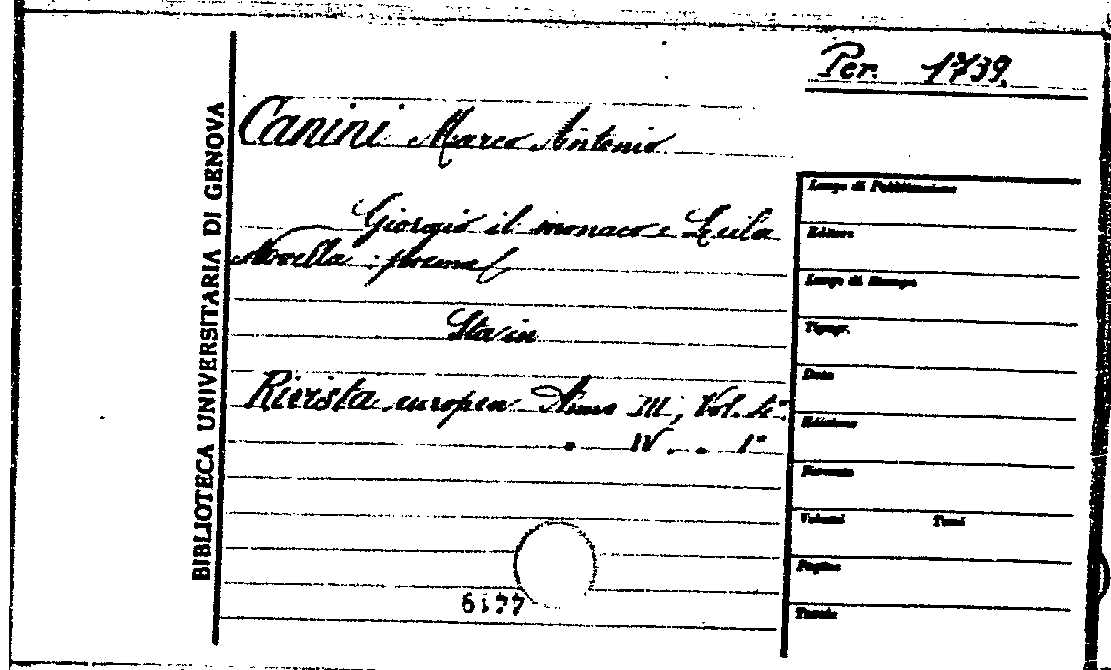 Per. 1739.
BIBLIOTECA UNIVERSITARIA DI GENOVA
Canini Marco Antonio
Giorgio il monaco e Leila
Novella: poema
Sta in
Rivista europea Anno III, Vol. 4°.
" IV. " 1°
Luogo di Pubblicazione
Editore
Luogo di Stampa
Tipogr.
Data
Edizione
Formato
Volumi Tomi
Pagine
Tavole
6177